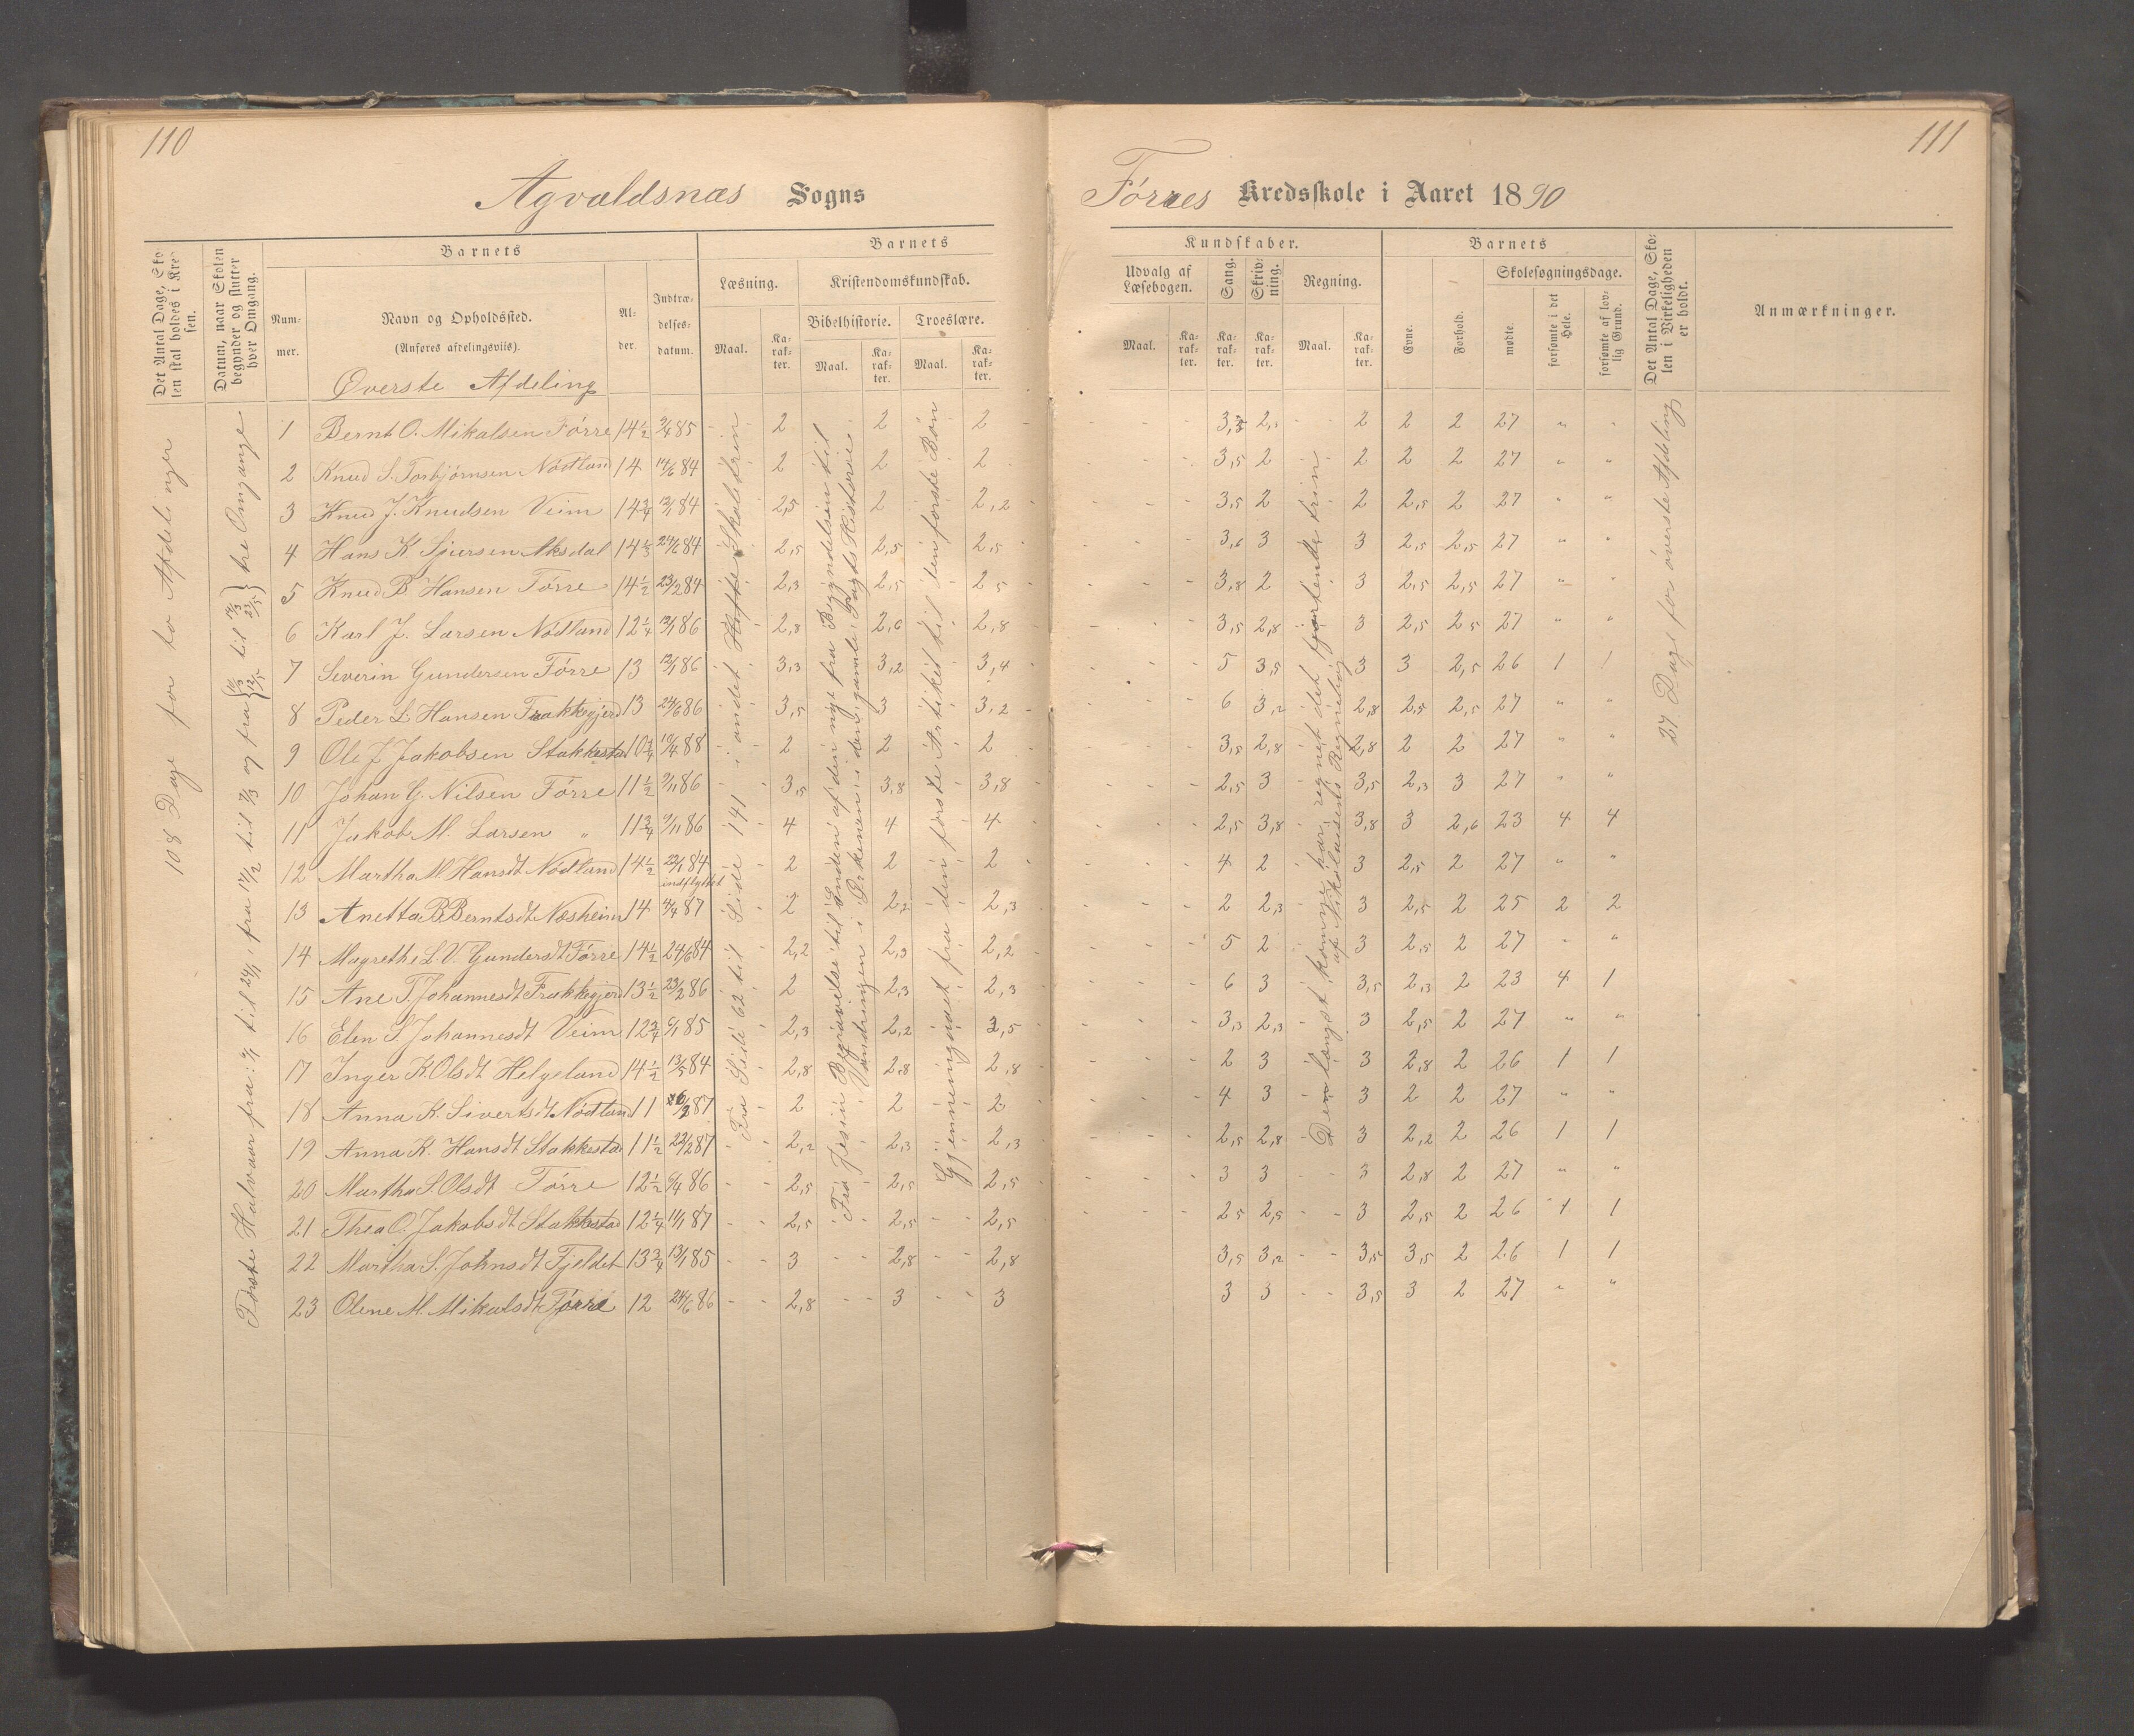 110
Agvaldsnæs Sogns
Det Antal Dage, Sko-
len skal holdes i Kred-
sen.
Datum, naar Skolen
begynder og slutter
hver Omgang.
Barnets
Num-
mer.
Navn og Opholdssted.
(Anføres afdelingsviis).
Al-
der.
Indtræ-
delses-
datum.
Barnets
Læsning.
Kristendomskundskab.
Bibelhistorie.
Troeslære.
Maal.
Ka-
rak-
ter.
Maal.
Ka-
rak-
ter.
Maal.
Ka-
rak-
ter.
Øverste Afdeling
108 Dage for to Afdelinger
Første Halvaar fra: 7/1 til 24/1 fra 17/2 til 7/3 og fra til tre Omgange
Fra Side 62 til Side 141 i andet Hefte
Fra Jesu Begravelse til Enden af den nye fra Begyndelsen til
Vandringen i Ørkenen i den gamle Pagts Historie
Gjennemgaaet fra den første Artikel til den første Bøn
1 Bernt O. Mikalsen Førre 14 1/2 85 2 2 2
2 Knud S. Torbjørnsen Nødland 14 84 2 2 2
3 Knud J. Knudsen Veim 14 3/4 84 2,5 2 2,2
4 Hans K Sjursen Aksdal 14 1/3 24/6 84 2,5 2,5 2,5
5 Knud B Hansen Førre 14 1/2 23/2 84 2,3 2,5 2 5
6 Karl J. Larsen Nødland 12 1/4 86 2,8 2,6 2,8
7 Severin Gundersen Førre 13 86 3,3 3,2 3,4
8 Peder L Hansen Frakkegjerd 13 24/6 86 3,5 3 3,2
9 Ole J Jakobsen Stakkestad 10 3/4 88 2 2 2
10 Johan G. Nilsen Førre 11 1/2 86 3,5 3,8 3,8
11 Jakob M. Larsen " 11 3/4 9/11 86 4 4 4
12 Martha M Hansdt Nødland 14 1/2 84 2 2 2
indflyttet
13 Anetta B. Berntsdt Næsheim 14 87 2 2,2 2,3
14 Magrethe L. V. Gundersdt Førre 14 1/2 24/6 84 2,2 2,3 2,2
15 Ane T. Johannesdt Frakkegjerd 13 1/2 23/2 86 2 2,3 2,3
16 Elen S. Johannesdt Veim 12 3/4 85 2,3 2,2 2,5
17 Inger K. Olsdt Helgeland 14 1/2 13/5 84 2,8 2,8 2,8
18 Anna K. Sivertsdt Nødland 11 87 2 2 2
19 Anna K. Hansdt Stakkestad 11 1/2 23/2 87 2,2 2,3 2,3
20 Martha S. Olsdt Førre 12 1/2 86 2,5 2,5 2,5
21 Thea O. Jakobsdt Stakkestad 12 1/4 87 2,5 2,5 2,5
22 Martha S. Johnsdt Fjeldet 13 3/4 13/1 85 3 2,8 2,8
23 Olene M. Mikalsdt Førre 12 24/6 86 2,8 3 3
111
Førres Kredsskole i Aaret 1890
Kundskaber.
Udvalg af
Læsebogen.
Sang.
Skriv-
ning.
Regning.
Maal.
Ka-
rak-
ter.
Ka-
rak-
ter.
Ka-
rak-
ter.
Maal.
Ka-
rak-
ter.
Barnets
Evne.
Forhold.
Skolesøgningsdage.
mødte.
forsømte i det
Hele.
forsømte af lov-
lig Grund.
Det Antal Dage, Sko-
len i Virkeligheden
er holdt.
Anmærkninger.
Den længst komne har regnet det fjortende trin
af Nikolaisens Regnebog
27 Dage for øverste Afdeling
3,8 2,5 2 2 2 27 " "
3,5 2 2 2 2 27 " "
3,5 2 2 2,5 2 27 " "
3,6 3 3 2,5 2,5 27 " "
3,8 2 3 2,5 2,5 27 " "
3,5 2,8 3 2,5 2 5 27 " "
5 3,5 3 3 2,5 26 1 1
6 3,2 2,8 2,5 2,5 27 " "
3,8 2,8 2,8 2 2 27 " "
2,5 3 3,5 2,3 3 27 " "
2,5 3,8 3,8 3 2,6 23 4 4
4 2 3 2,5 2 27 " "
2 2,3 3 2,5 2 25 2 2
5 2 3 2,5 2 27 " "
6 3 3,5 2,3 2 23 4 1
3,3 2,3 3 2,5 2 27 " "
2 3 3 2,8 2 26 1 1
4 3 3 2 2 27 " "
2,5 2,8 3 2,2 2 26 1 1
3 3 3 2,8 2 27 " "
2 5 2,5 3 2,5 2 26 1 1
3,5 3,2 3,5 3,5 2 26 1 1
3 3 3,5 3 2 27 " "